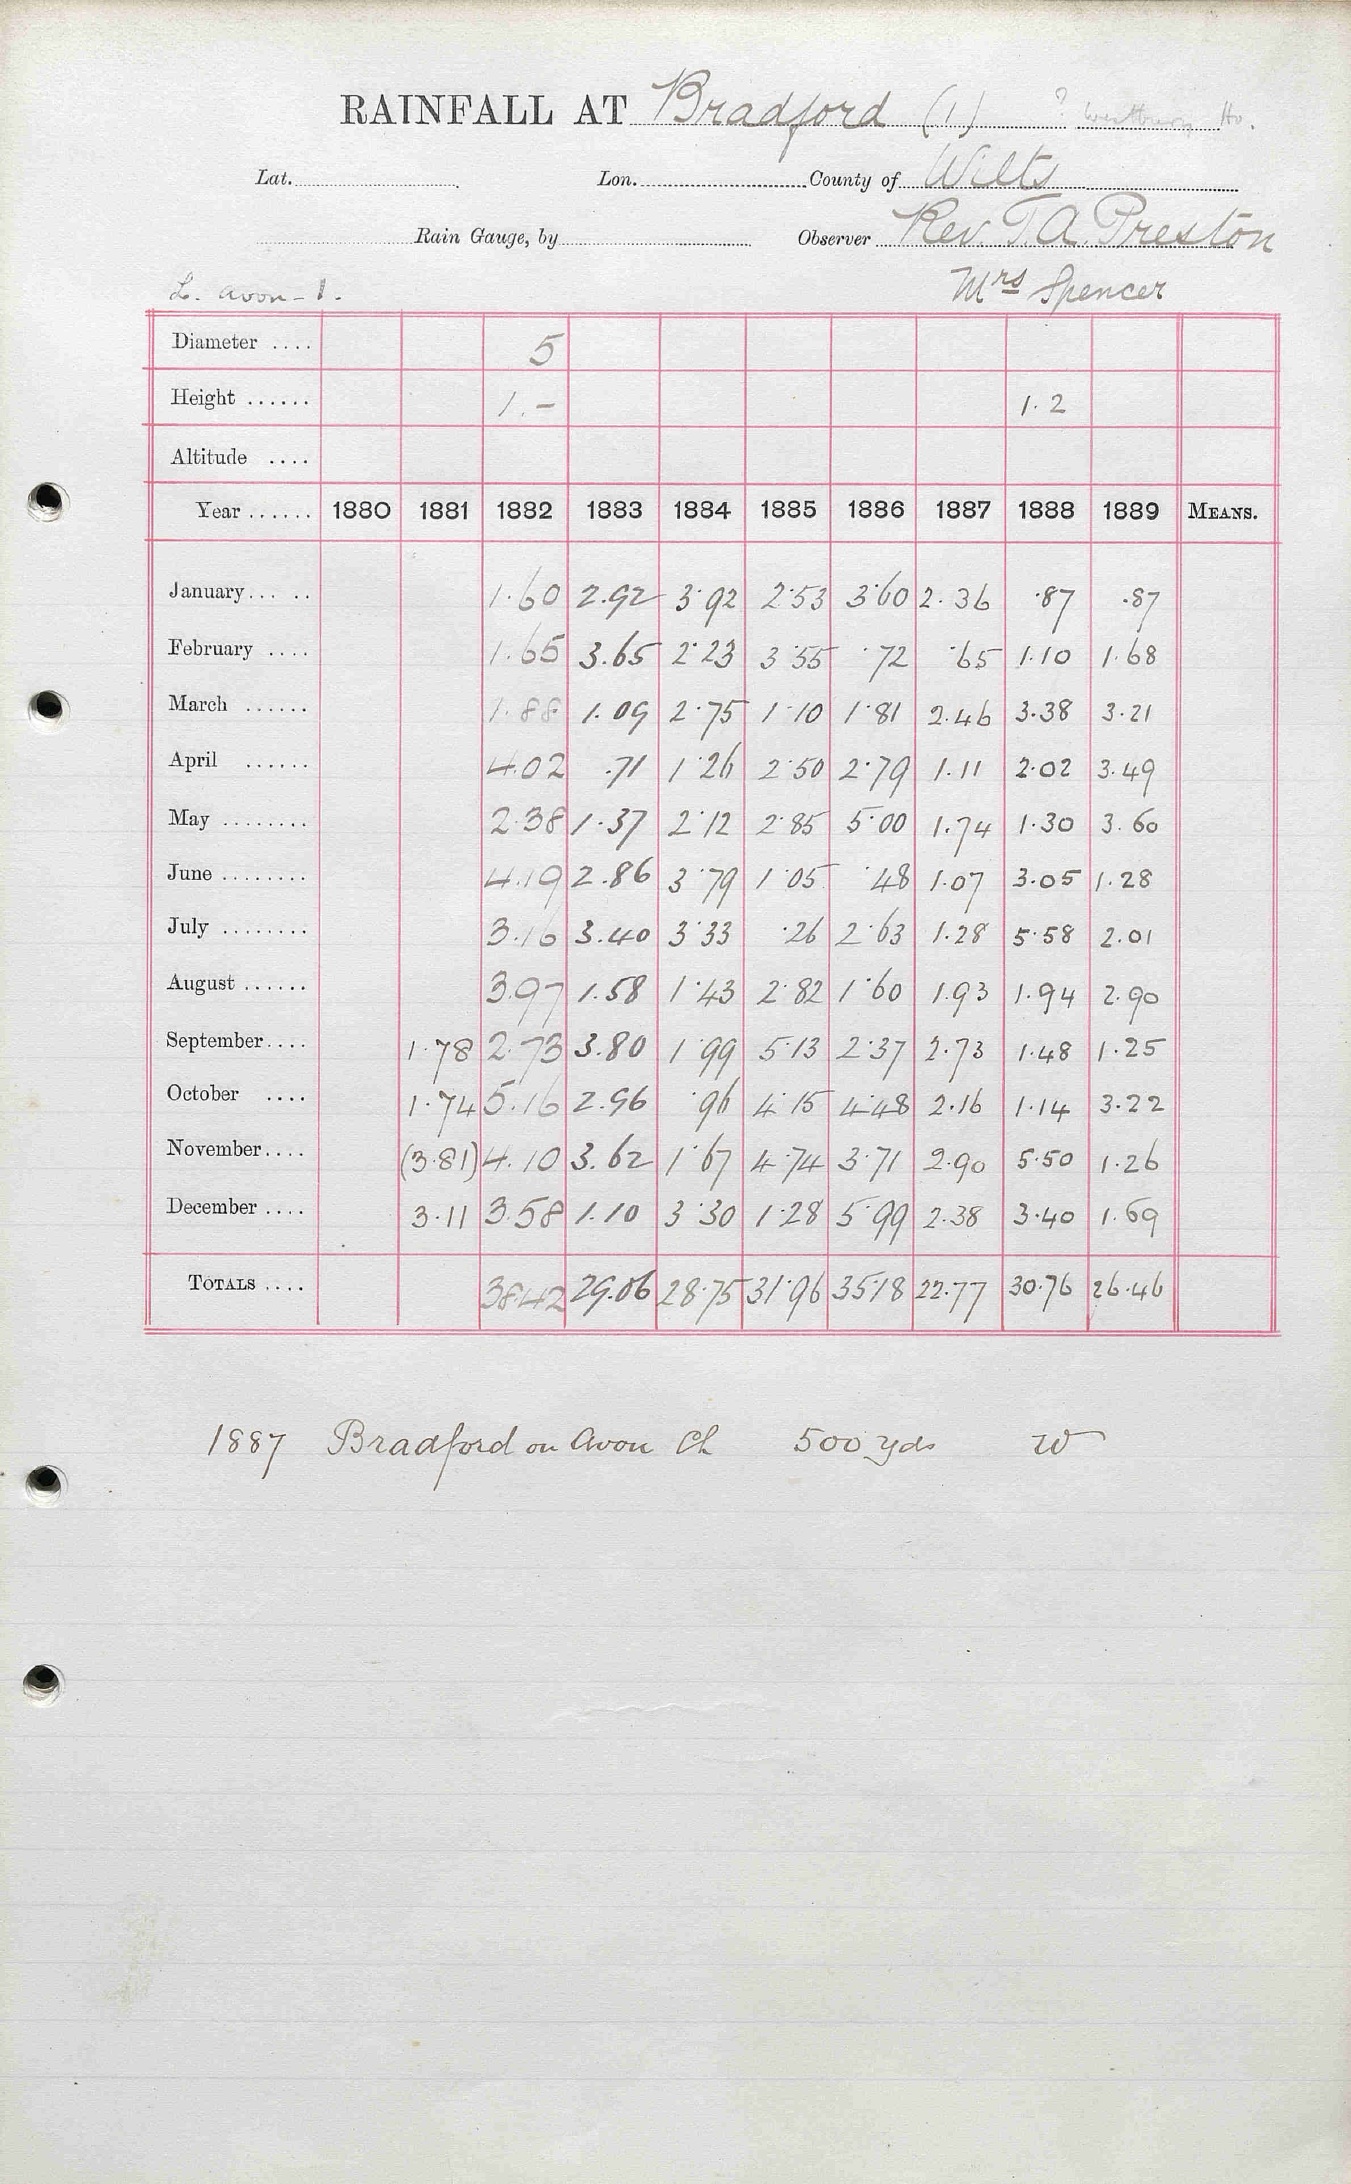 RAINFALL AT Bradford (1) ? Westbury Ho.
Lat. Lon. County of Wilts
Rain Gauge, by Observer Rev. T.A. Preston
L. Avon - 1. Mrs Spencer
Diameter .... 5
Height ...... 1.- 1.2
Altitude ....
Year ...... 1880 1881 1882 1883 1884 1885 1886 1887 1888 1889 MEANS.
January ... .. 1.60 2.92 3.92 2.53 3.60 2.36 .87 .87
February .... 1.65 3.65 2.23 3.55 .72 .65 1.10 1.68
March ...... 1.88 1.09 2.75 1.10 1.81 2.46 3.38 3.21
April ...... 4.02 .71 1.26 2.50 2.79 1.11 2.02 3.49
May ........ 2.38 1.37 2.12 2.85 5.00 1.74 1.30 3.60
June ........ 4.19 2.86 3.79 1.05 .48 1.07 3.05 1.28
July ........ 3.16 3.40 3.33 .26 2.63 1.28 5.58 2.01
August ...... 3.97 1.58 1.43 2.82 1.60 1.93 1.94 2.90
September .... 1.78 2.73 3.80 1.99 5.13 2.37 2.73 1.48 1.25
October .... 1.74 5.16 2.96 .96 4.15 4.48 2.16 1.14 3.22
November .... (3.81) 4.10 3.62 1.67 4.74 3.71 2.90 5.50 1.26
December .... 3.11 3.58 1.10 3.30 1.28 5.99 2.38 3.40 1.69
TOTALS .... 38.42 29.06 28.75 31.96 35.18 22.77 30.76 26.46
1887 Bradford on Avon Ch 500 yds W